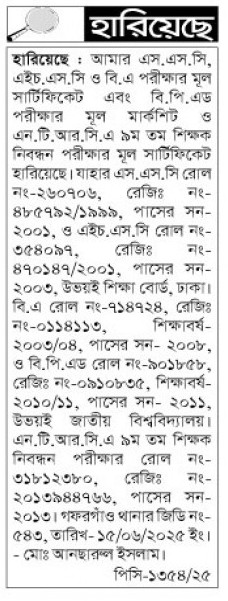 হারিয়েছে
হারিয়েছে : আমার এস.এস.সি,
এইচ.এস.সি ও বি.এ পরীক্ষার মূল
সার্টিফিকেট এবং বি.পি.এড
পরীক্ষার মূল মার্কশিট ও
এন.টি.আর.সি.এ ৯ম তম শিক্ষক
নিবন্ধন পরীক্ষার মূল সার্টিফিকেট
হারিয়েছে। যাহার এস.এস.সি রোল
নং-২৬০৭০৬, রেজিঃ নং-
৪৮৫৭৯২/১৯৯৯, পাসের সন-
২০০১, ও এইচ.এস.সি রোল নং-
৩৫৪০৯৭, রেজিঃ নং-
৪৭০১৪৭/২০০১, পাসের সন-
২০০৩, উভয়ই শিক্ষা বোর্ড, ঢাকা।
বি.এ রোল নং-৭১৪৭২৪, রেজিঃ
নং-০১১৪১১৩, শিক্ষাবর্ষ-
২০০৩/০৪, পাসের সন- ২০০৮,
ও বি.পি.এড রোল নং-৯০১৮৫৮,
রেজিঃ নং-০৯১০৮৩৫, শিক্ষাবর্ষ-
২০১০/১১, পাসের সন- ২০১১,
উভয়ই জাতীয় বিশ্ববিদ্যালয়।
এন.টি.আর.সি.এ ৯ম তম শিক্ষক
নিবন্ধন পরীক্ষার রোল নং-
৩১৮১২৩৮০, রেজিঃ নং-
২০১৩৯৪৪৭৬৬, পাসের সন-
২০১৩। গফরগাঁও থানার জিডি নং-
৫৪৩, তারিখ- ১৫/০৬/২০২৫ ইং।
- মোঃ আনছারুল ইসলাম।
পিসি-১৩৫৪/২৫